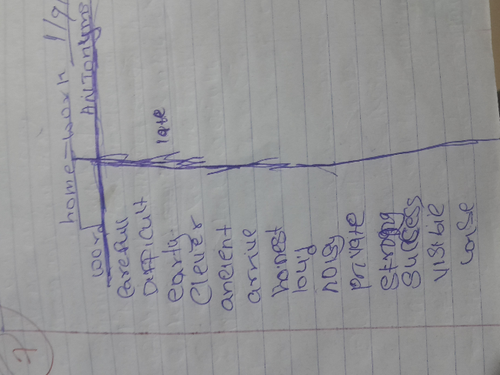 7
home-work
word Antonyms
Carefull
Difficult
early late
Clevier
ancient
arrive
honest
loud
noisy
private
Strong
Success
visible